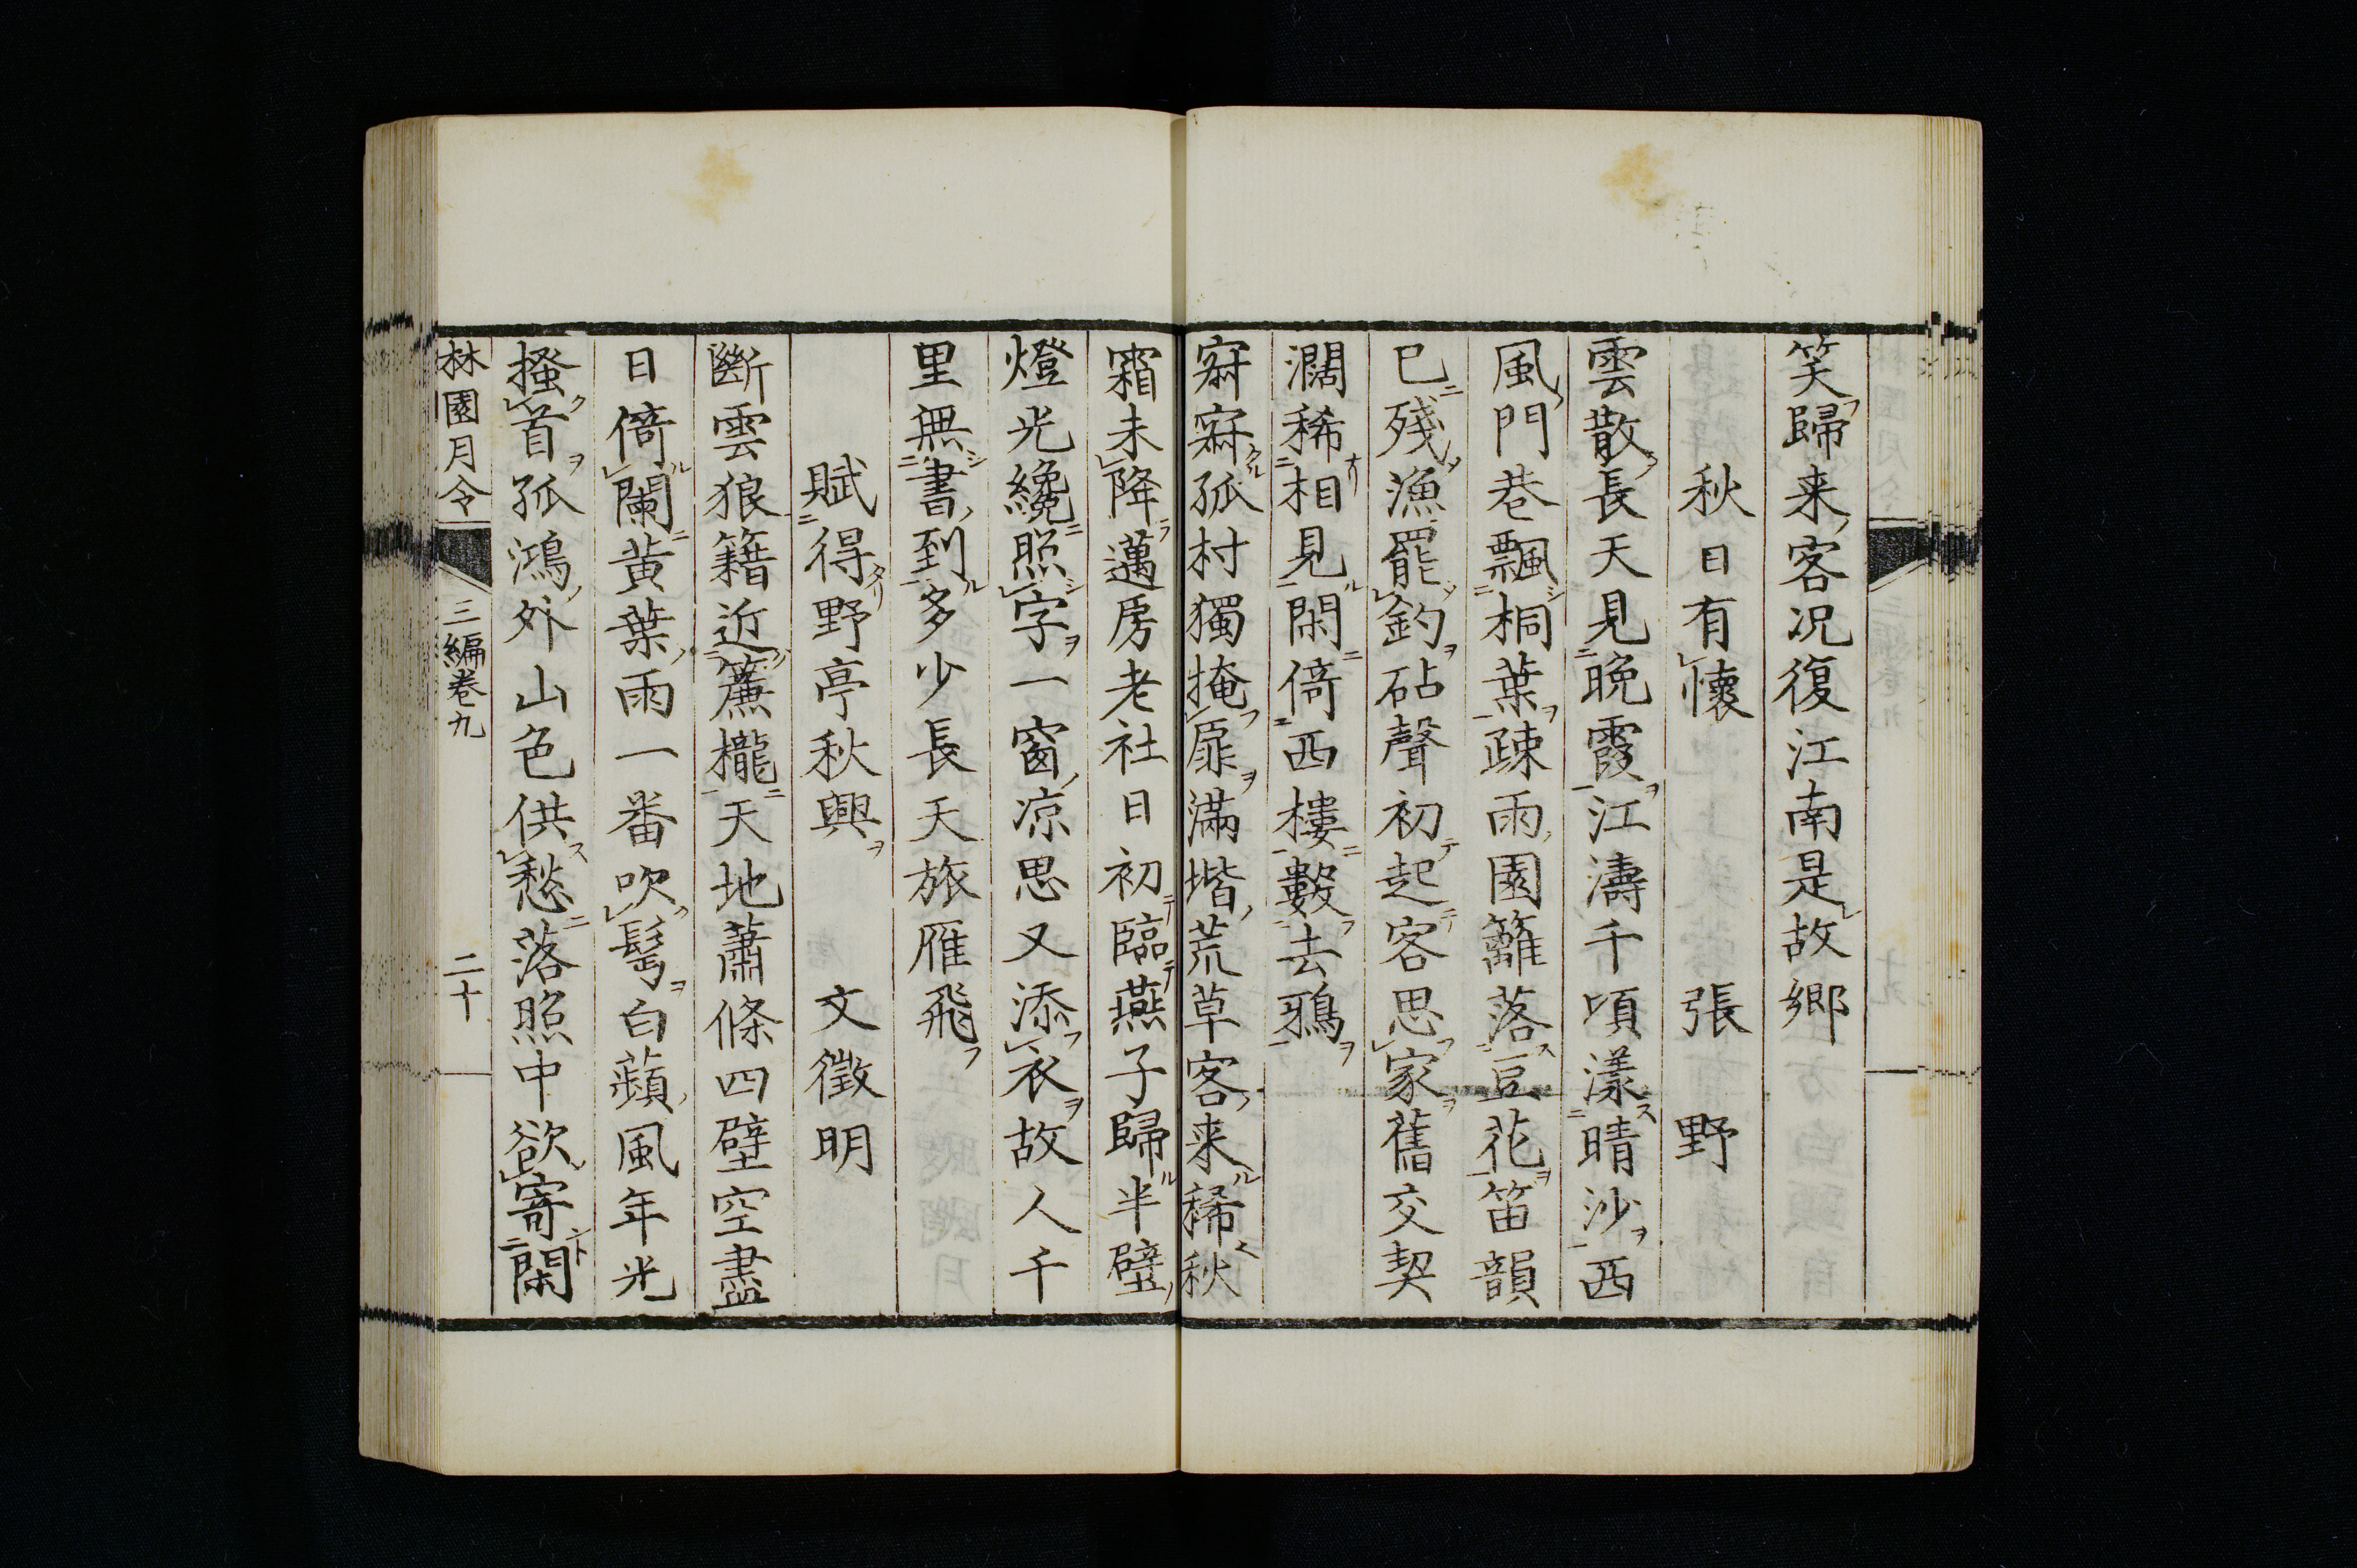 笑歸来客况復江南是故郷
秋日有懷 張 野
雲散長天見晩霞江濤千頃漾晴沙西
風門巷飄桐葉疎雨園籬落豆花笛韻
已殘漁罷釣砧聲初起客思家舊交契
濶稀相見閑倚西樓數去鴉
寂寂孤村獨掩扉滿堦荒草客来稀秋
霜未降蘧房老社日初臨燕子歸半壁
燈光纔照字一窗凉思又添衣故人千
里無書到多少長天旅雁飛
賦得野亭秋興 文徴明
斷雲狼籍近簾櫳天地蕭條四壁空盡
日倚闌黄葉雨一番吹髩白蘋風年光
搔首孤鴻外山色供愁落照中欲寄閑
林園月令 三編巻九 二十